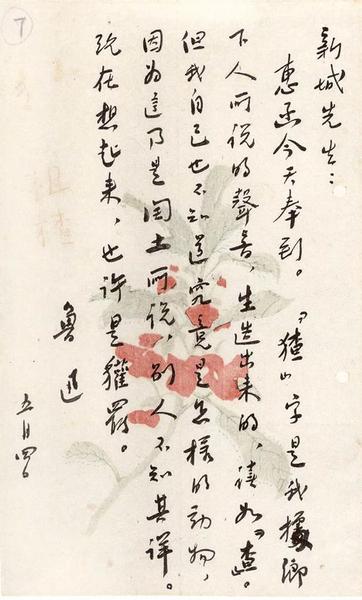 7
新城先生：
惠函今天奉到。「猹」字是我據鄉
下人所說的聲音，生造出來的，讀如「查」。
但我自己也不知道究竟是怎樣的動物，
因為這乃是閏土所說，別人不知其詳。
現在想起來，也許是貛罷。
魯迅
五月四日